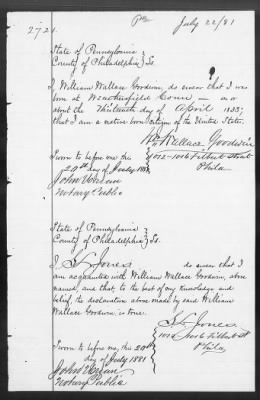 2721. Pa July 22/81
State of Pennsylvania }
County of Philadelphia } Ss.
I William Wallace Goodwin, do swear that I was
born at Weathersfield Conn — on or
about the Thirteenth day of April 1835;
that I am a native born Citizen of the United States.
Wm Wallace Goodwin
1012-1016 Filbert Street
Phila
Sworn to before me, this
20th day of July 1881
John
Notary Public
State of Pennsylvania }
County of Philadelphia } Ss.
I S. L. Jones do swear that I
am acquainted with William Wallace Goodwin, above
named, and that to the best of my knowledge and
belief, the declaration above made by said William
Wallace Goodwin, is true.
S. L. Jones
1012 Filbert St
Phila
Sworn to before me, this 20th
day of July 1881
John
Notary Public